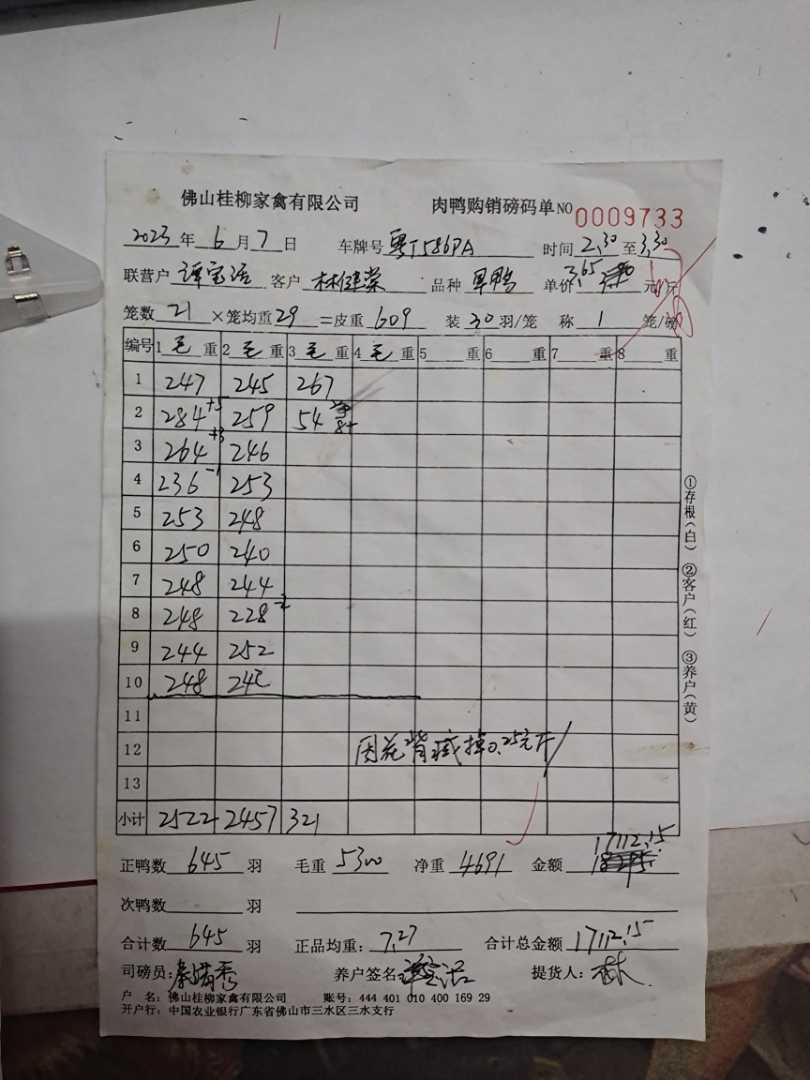 佛山桂柳家禽有限公司 肉鸭购销磅码单NO 0009733
2023年6月7日 车牌号 粤T586PA 时间 2.30 至 3.30
联营户 谭宝活 客户 林健棠 品种 旱鸭 单价 3.65 元/斤
笼数 21 ×笼均重 29 =皮重 609 装 30 羽/笼 称 1 笼/磅
编号 1 毛 重 2 毛 重 3 毛 重 4 毛 重 5 重 6 重 7 重 8 重
1 247 245 267
2 284 +5 259 54
3 264 +3 246
4 236 -1 253
5 253 248
6 250 240
7 248 244
8 248 228 -2
9 244 252
10 248 242
11
12 因花背减掉0.25元/斤
13
小计 2522 2457 321
①存根(白) ②客户(红) ③养户(黄)
17112.15
正鸭数 645 羽 毛重 5300 净重 4691 金额
次鸭数 羽
合计数 645 羽 正品均重: 7.27 合计总金额 17112.15
司磅员: 养户签名: 谭宝活 提货人: 林
户 名: 佛山桂柳家禽有限公司 账号: 444 401 010 400 169 29
开户行: 中国农业银行广东省佛山市三水区三水支行